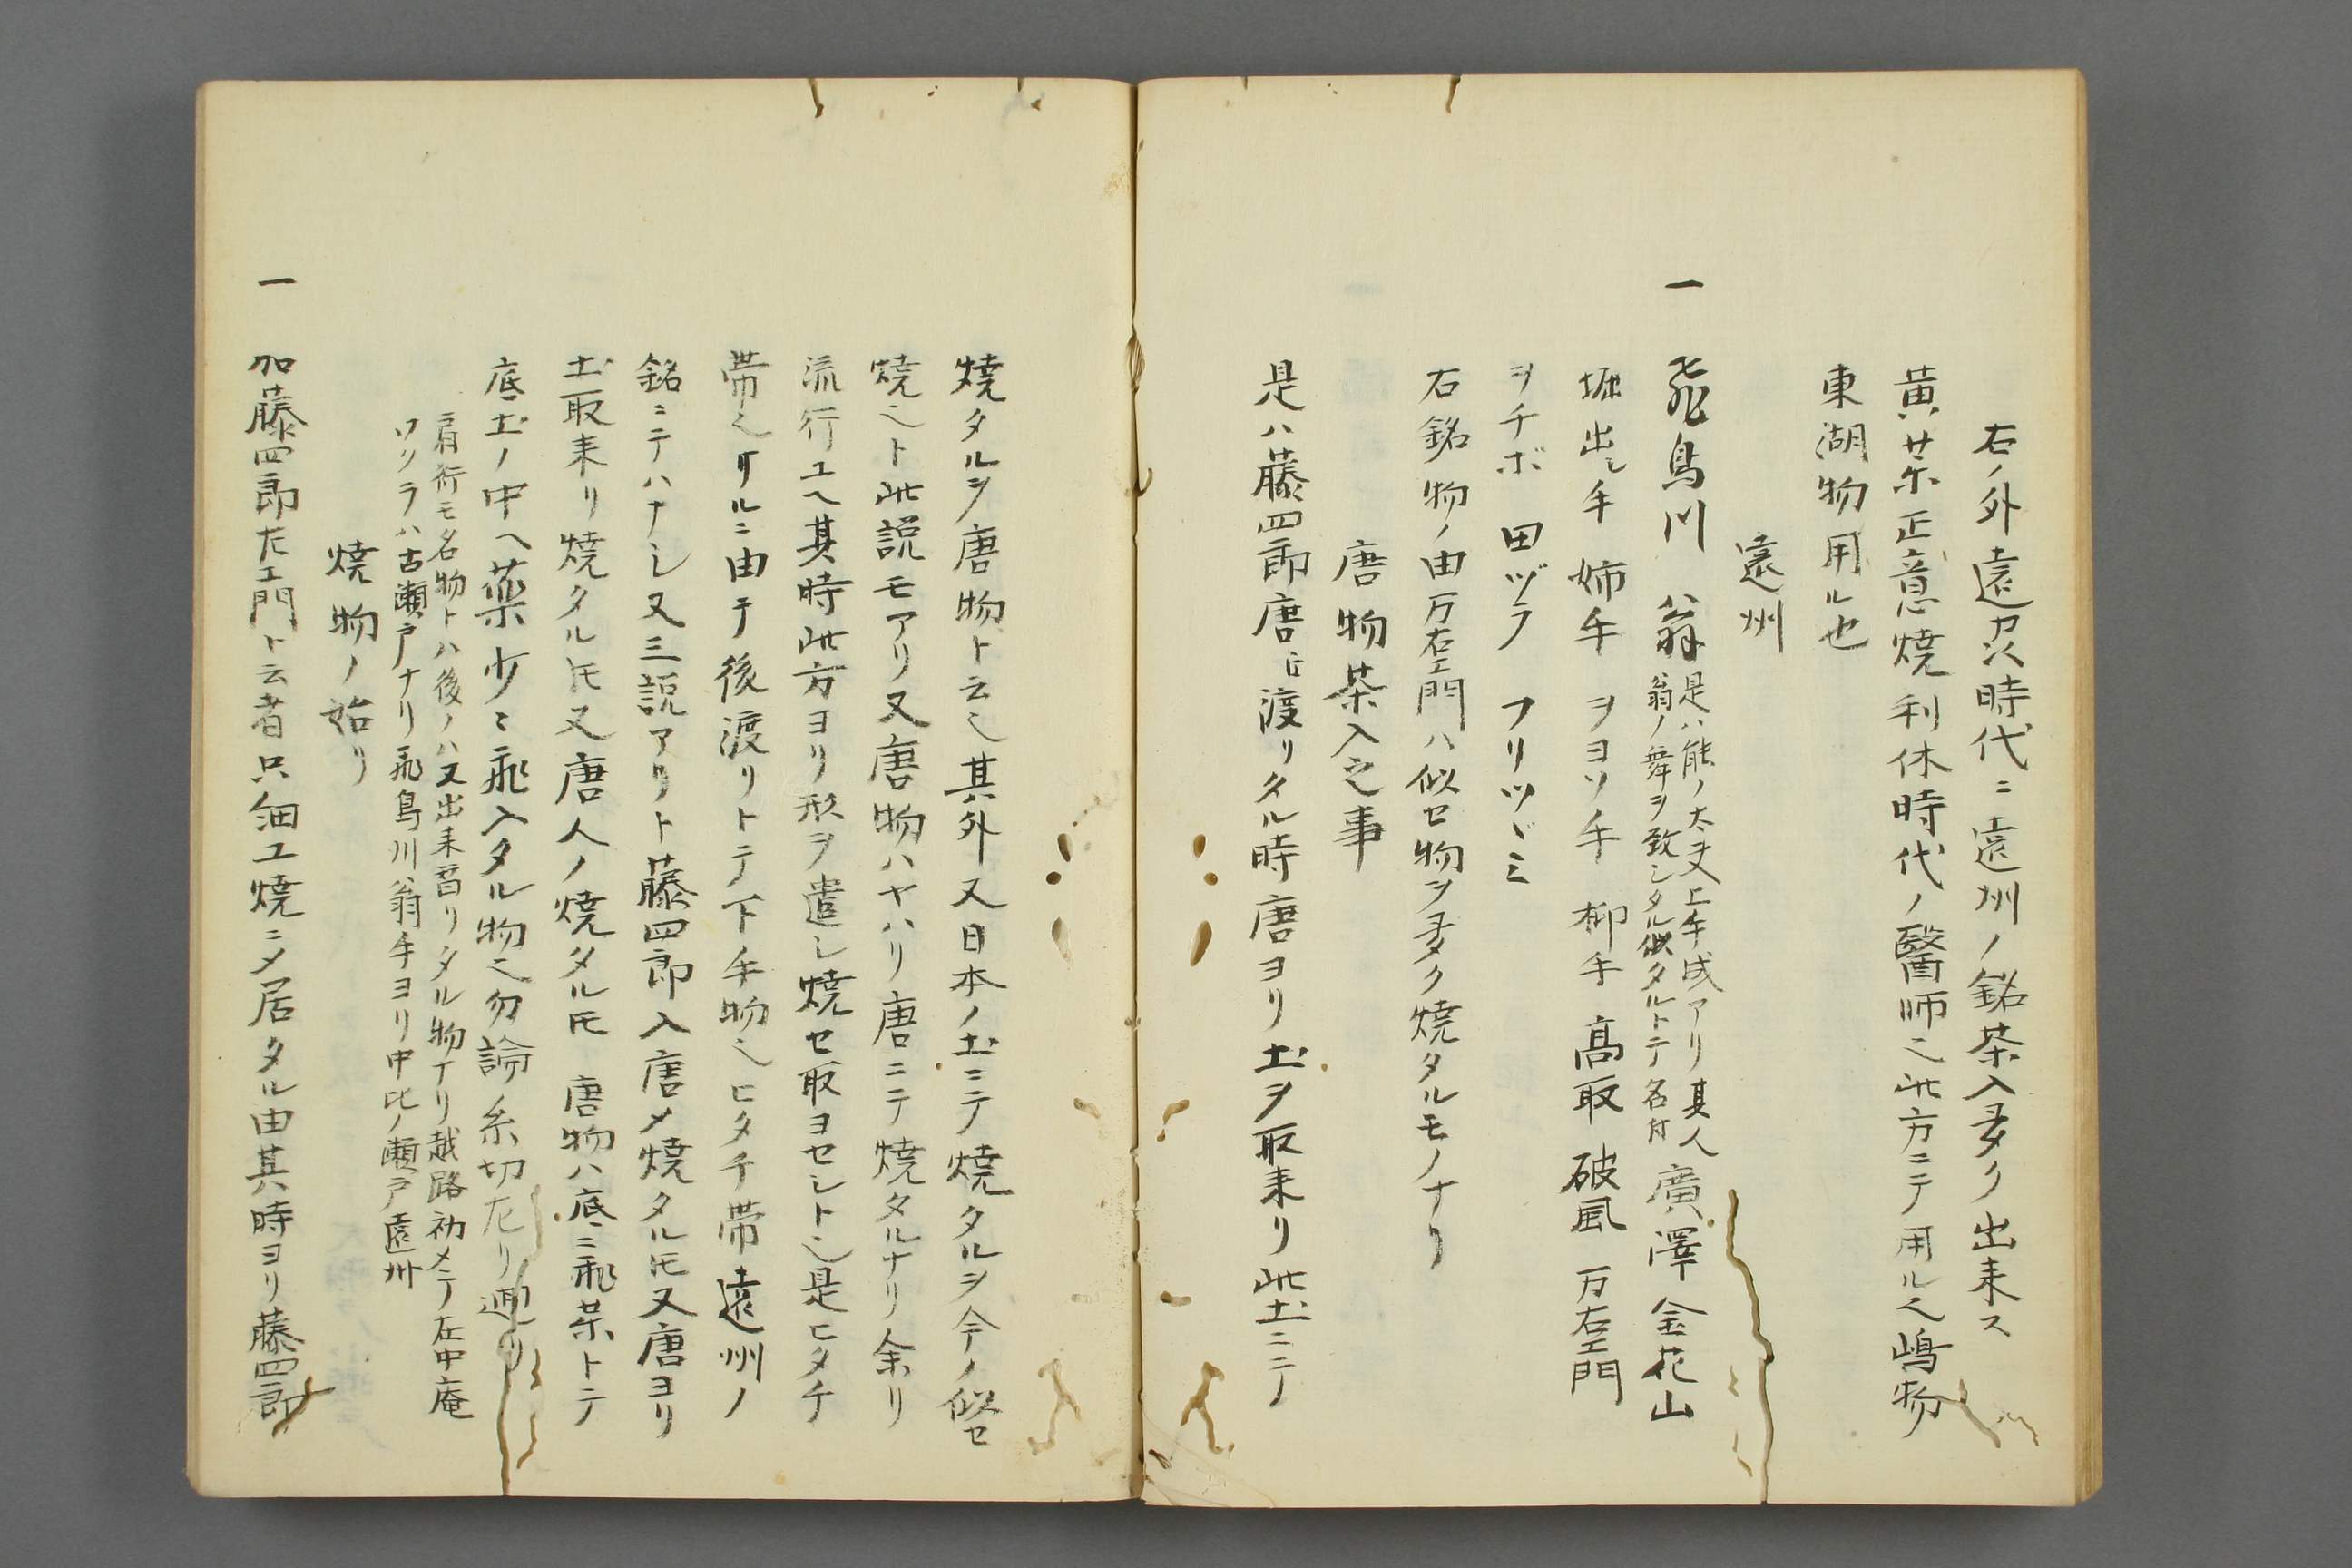 右ノ外遠刕時代ニ遠州ノ銘茶入多ク出来ス
黄茶正意焼利休時代ノ醫師也此方ニテ用ル也嶋物
東湖物用ル也
遠州
一 飛鳥川 翁 是ハ能ノ太夫上手成アリ其人
翁ノ舞ヲ致シタル似タルトテ名付 廣澤 金花山
堀出シ手 姉手 ヲヨソ手 柳手 髙取 破風 万右エ門
ヲチボ 田ヅラ フリツヾミ
右銘物ノ由万右エ門ハ似セ物ヲ多ク焼タルモノナリ
唐物茶入之事
是ハ藤四郎唐ニ渡リタル時唐ヨリ土ヲ取来リ此土ニテ
焼タルヲ唐物ト云也其外又日本ノ土ニテ焼タルヲ今ノ似セ
焼也ト此説モアリ又唐物ハヤハリ唐ニテ焼タルナリ余リ
流行ユヘ其時此方ヨリ形ヲ遣シ焼セ取ヨセシト也是ヒタチ
帯也ケルニ由テ後渡リトテ下手物也ヒタチ帯遠州ノ
銘ニテハナシ又三説アリト藤四郎入唐〆焼タルトモ又唐ヨリ
土取来リ焼タルトモ又唐人ノ焼タルトモ 唐物ハ底ニ飛茶トテ
底土ノ中ヘ薬少〻飛入タル物也勿論糸切左リ廻リ
肩衝モ名物トハ後ノハ又出来替リタル物ナリ越路初メテ在中庵
ワリラハ古瀬戸ナリ飛鳥川翁手ヨリ中比ノ瀬戸遠州
焼物ノ始リ
一 加藤四郎左エ門ト云者只細工焼ニ〆居タル由其時ヨリ藤四郎